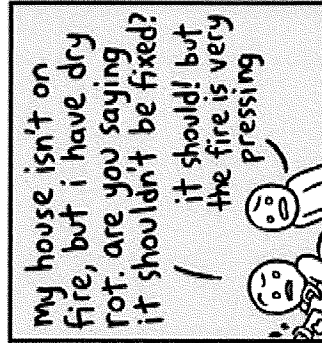 my house isn't on
fire, but i have dry
rot. are you saying
it shouldn't be fixed?
it should! but
the fire is very
pressing